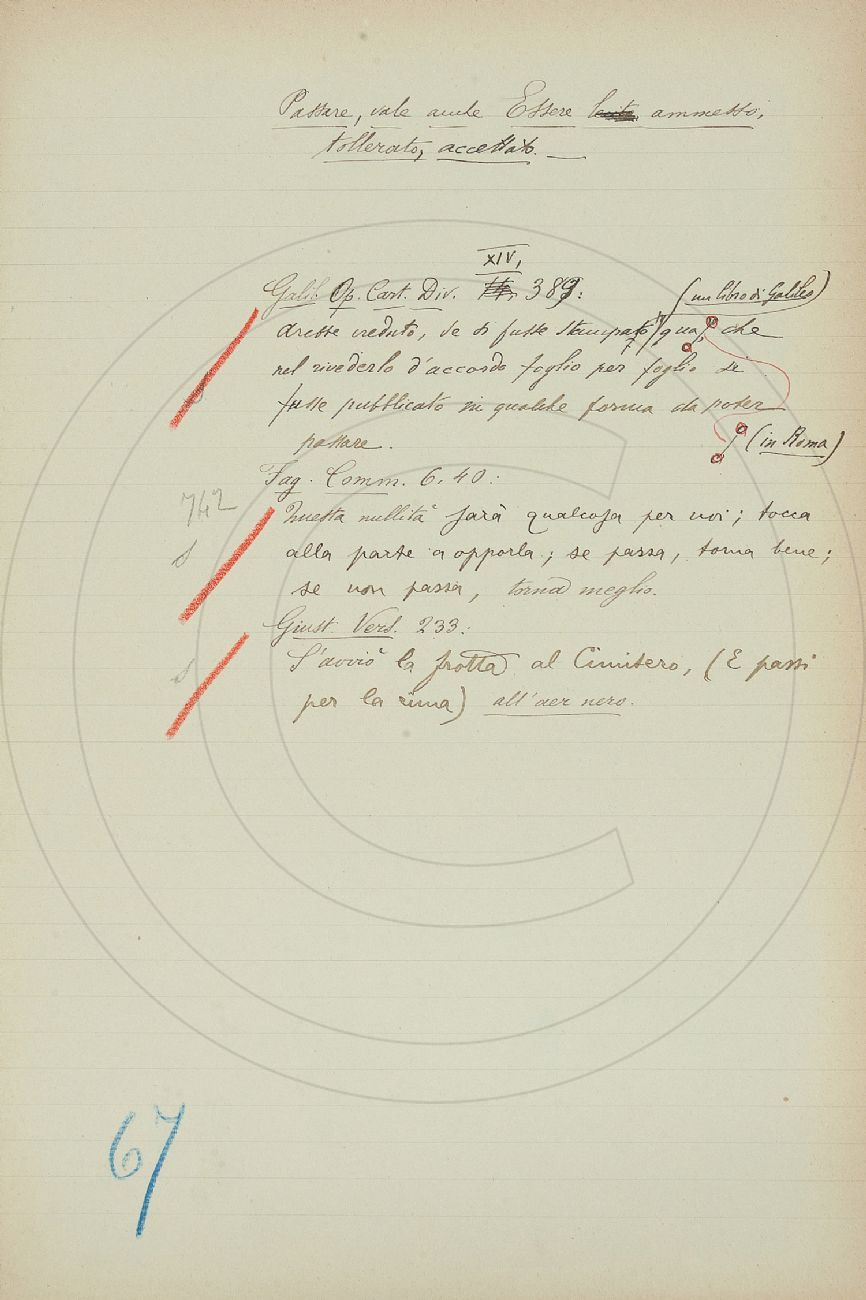 Passare, vale anche Essere ammesso,
tollerato, accettato. —
XIV,
Galil. Op. Cart. Div. 389:
(un libro di Galileo)
Avesse creduto, se si fusse stampato qua, che
nel rivederlo d'accordo foglio per foglio si
fusse pubblicato in qualche forma da poter
passare.
(in Roma)
Fag. Comm. 6. 40:
742
Questa nullità sarà qualcosa per voi; tocca
alla parte a opporla; se passa, torna bene;
se non passa, torna meglio.
Giust. Vers. 233:
S'avviò la frotta al Cimitero, (E passi
per la rima) all'aer nero.
67